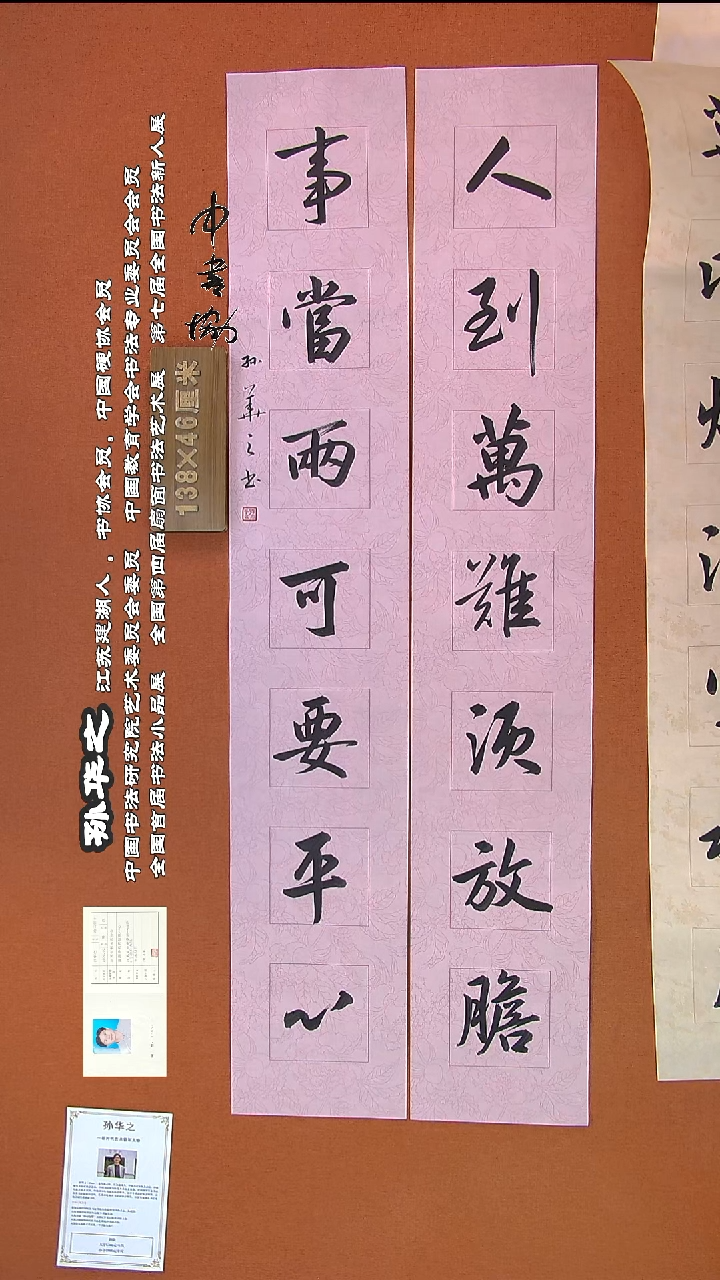 人到萬難须放膽
事當兩可要平心
孙華之书
中書協
138×46厘米
孙华之 江苏建湖人。书协会员。中国硬协会员
中国书法研究院艺术委员会委员 中国教育学会书法专业委员会会员
全国首届书法小品展 全国第四届扇面书法艺术展 第七届全国书法新人展
孙华之